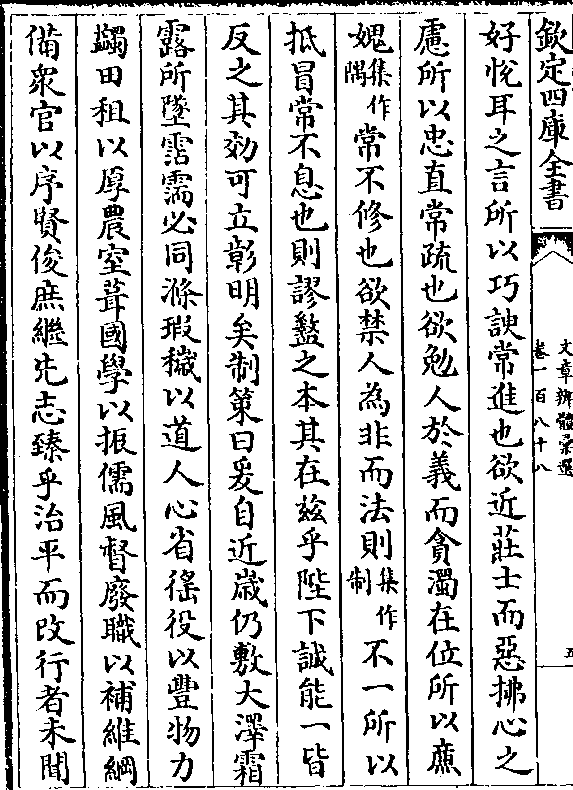 欽定四庫全書
文章辨體彙選
卷一百八十八
五
好悅耳之言所以巧諛常進也欲近莊士而惡拂心之
慮所以忠直常疏也欲勉人於義而貪濁在位所以廉
媿集作隅常不修也欲禁人為非而法則集作制不一所以
抵冒常不息也則謬盭之本其在兹乎陛下誠能一皆
反之其効可立彰明矣制策曰爰自近歲仍敷大澤霜
露所墜霑濡必同滌瑕穢以道人心省徭役以豐物力
蠲田租以厚農室葺國學以振儒風督廢職以補維綱
備衆官以序賢俊庶繼先志臻乎治平而改行者未聞